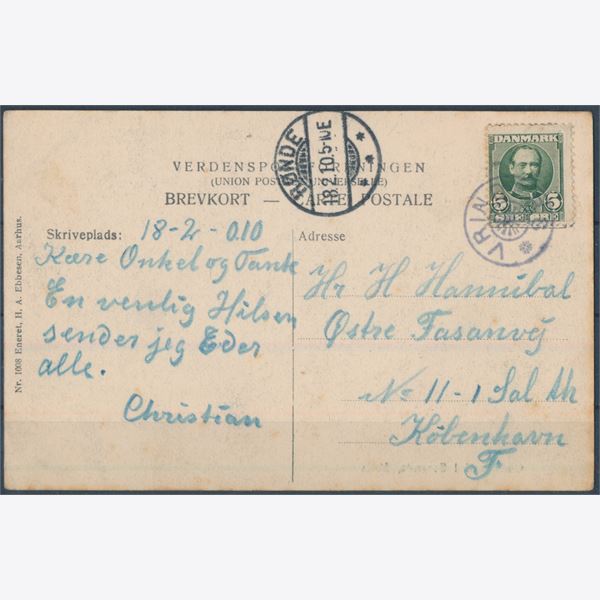 VERDENSPO FORENINGEN
(UNION POSTALE UNIVERSELLE)
BREVKORT — CARTE POSTALE
RØNDE
18.2.10.5-10E
DANMARK
5 5
ØRE ØRE
VRIN
Skriveplads: 18-2-010
Kære Onkel og Tante
En venlig Hilsen
sender jeg Eder
alle.
Christian
Adresse
Hr H Hannibal
Østre Fasanvej
No 11-1 Sal th
København
F
Nr. 1008 Eneret, H. A. Ebbesen, Aarhus.